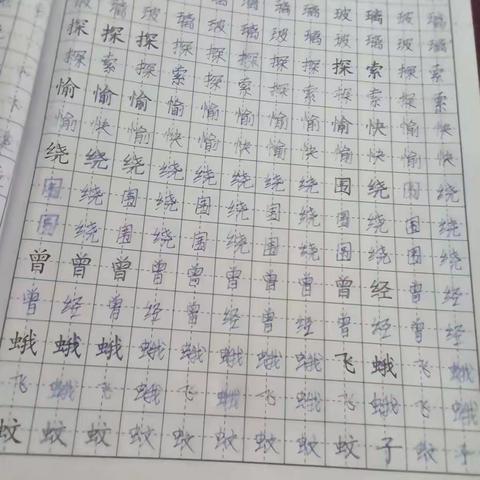 玻 璃 玻 璃
玻 璃 玻 璃 玻 璃 玻 璃 玻 璃 玻 璃
探 探 探 探 探 探 探 探 探 索 探 索
探 索 探 索 探 索 探 索 探 索 探 索
愉 愉 愉 愉 愉 愉 愉 愉 愉 快 愉 快
愉 快 愉 快 愉 快 愉 快 愉 快 愉 快
绕 绕 绕 绕 绕 绕 绕 绕 围 绕 围 绕
围 绕 围 绕 围 绕 围 绕 围 绕 围 绕
围 绕 围 绕 围 绕 围 绕 围 绕 围 绕
曾 曾 曾 曾 曾 曾 曾 曾 曾 经 曾 经
曾 经 曾 经 曾 经 曾 经 曾 经 曾 经
蛾 蛾 蛾 蛾 蛾 蛾 蛾 蛾 飞 蛾 飞 蛾
飞 蛾 飞 蛾 飞 蛾 飞 蛾 飞 蛾 飞 蛾
蚊 蚊 蚊 蚊 蚊 蚊 蚊 蚊 蚊 子 蚊 子